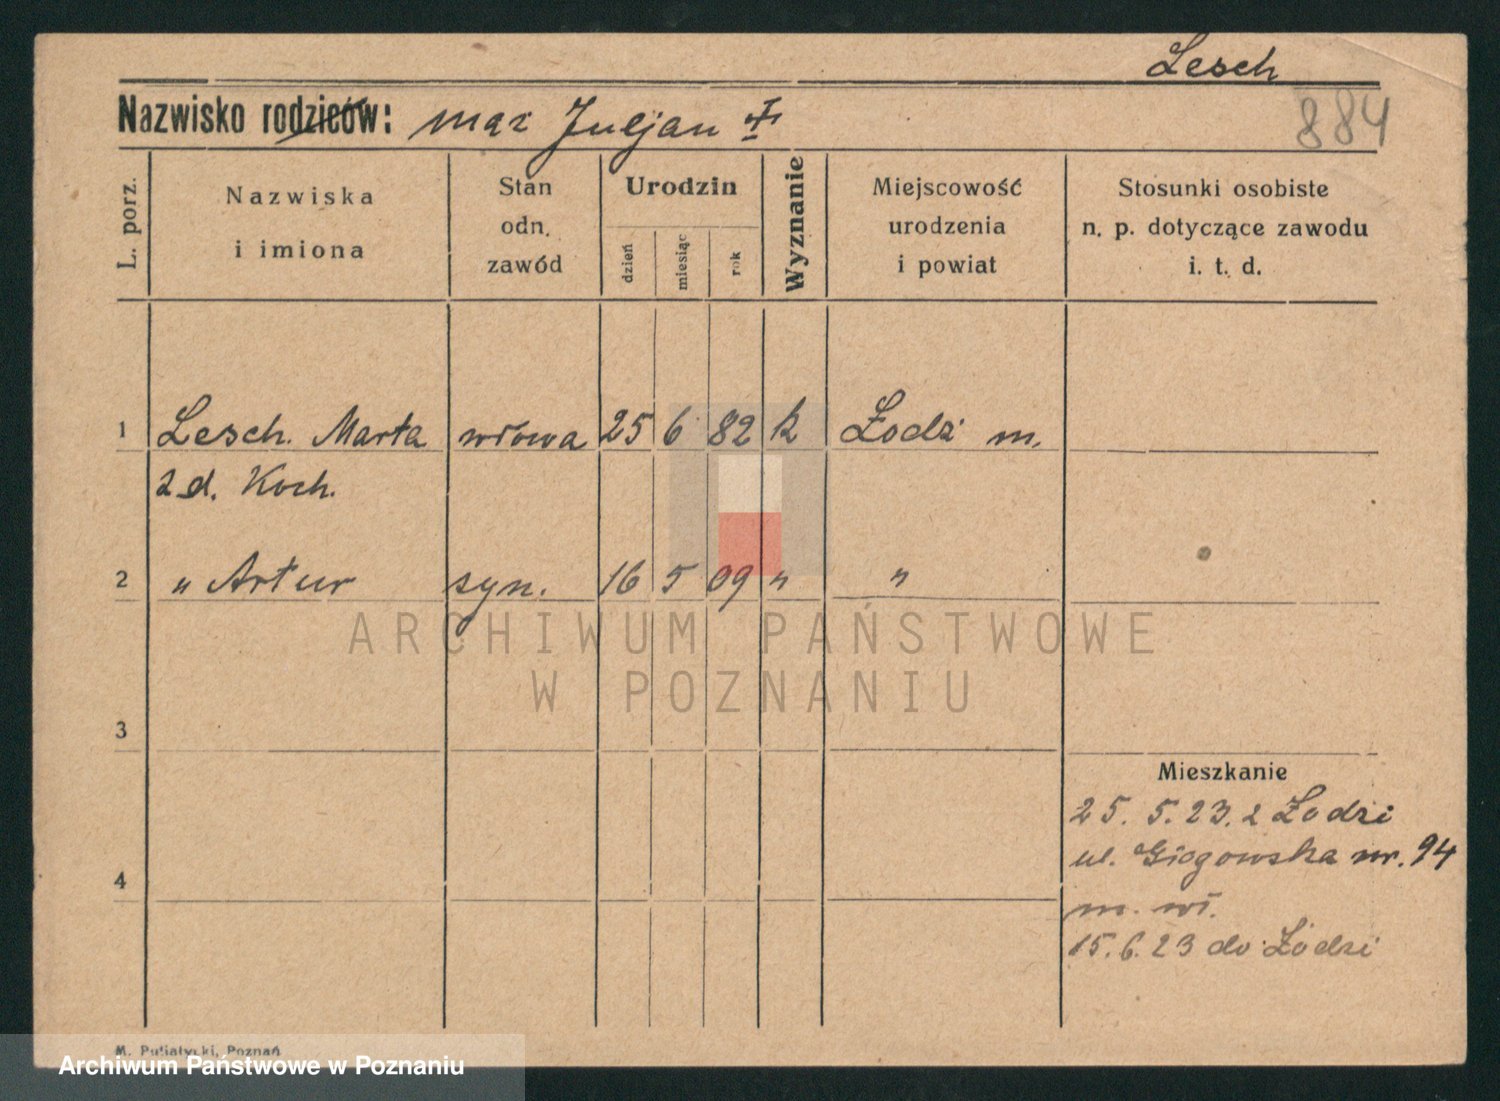 Lesch
884
Nazwisko rodziców: mąż Juljan
L. porz.
Nazwiska i imiona
Stan odn. zawód
Urodzin
dzień
miesiąc
rok
Wyznanie
Miejscowość urodzenia i powiat
Stosunki osobiste n. p. dotyczące zawodu i. t. d.
1 Lesch. Marta wdowa 25 6 82 k Łodź m.
z d. Koch.
2 " Artur syn. 16 5 09 " "
ARCHIWUM PAŃSTWOWE
W POZNANIU
3
Mieszkanie
25. 5. 23. z Łodzi
ul. Głogowska nr. 94
4
m. wł.
15. 6. 23 do Łodzi
M. Putiatycki, Poznań
Archiwum Państwowe w Poznaniu